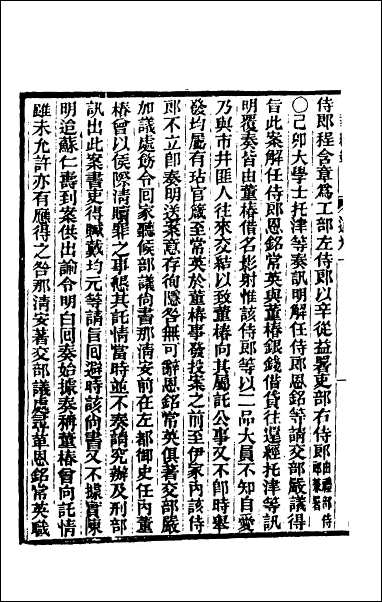 侍郎程含章爲工部左侍郎以辛從益署吏部右侍郎由禮部侍郎兼署
○己卯大學士托津等奏訊明解任侍郎恩銘等請交部嚴議得
旨此案解任侍郎恩銘常英與董椿銀錢借貸往還經托津等訊
明覆奏皆由董椿借名影射惟該侍郎等以二品大員不知自愛
乃與市井匪人往來交結以致董椿向其屬託公事又不卽時舉
發均屬有玷官箴至常英於董椿事發投案之前至伊家內該侍
郎不立卽奏明送案意存徇隱咎無可辭恩銘常英俱著交部嚴
加議處飭令回家聽候部議尙書那淸安前在左都御史任內董
椿曾以侯際淸贖罪之事懇其託情當時並不奏請究辦及刑部
訊出此案書吏得贓戴均元等請旨回避時該尙書又不據實陳
明迨蘇仁壽到案供出諭令明白回奏始據奏稱董椿曾向託情
雖未允許亦有應得之咎那淸安著交部議處尋革恩銘常英職